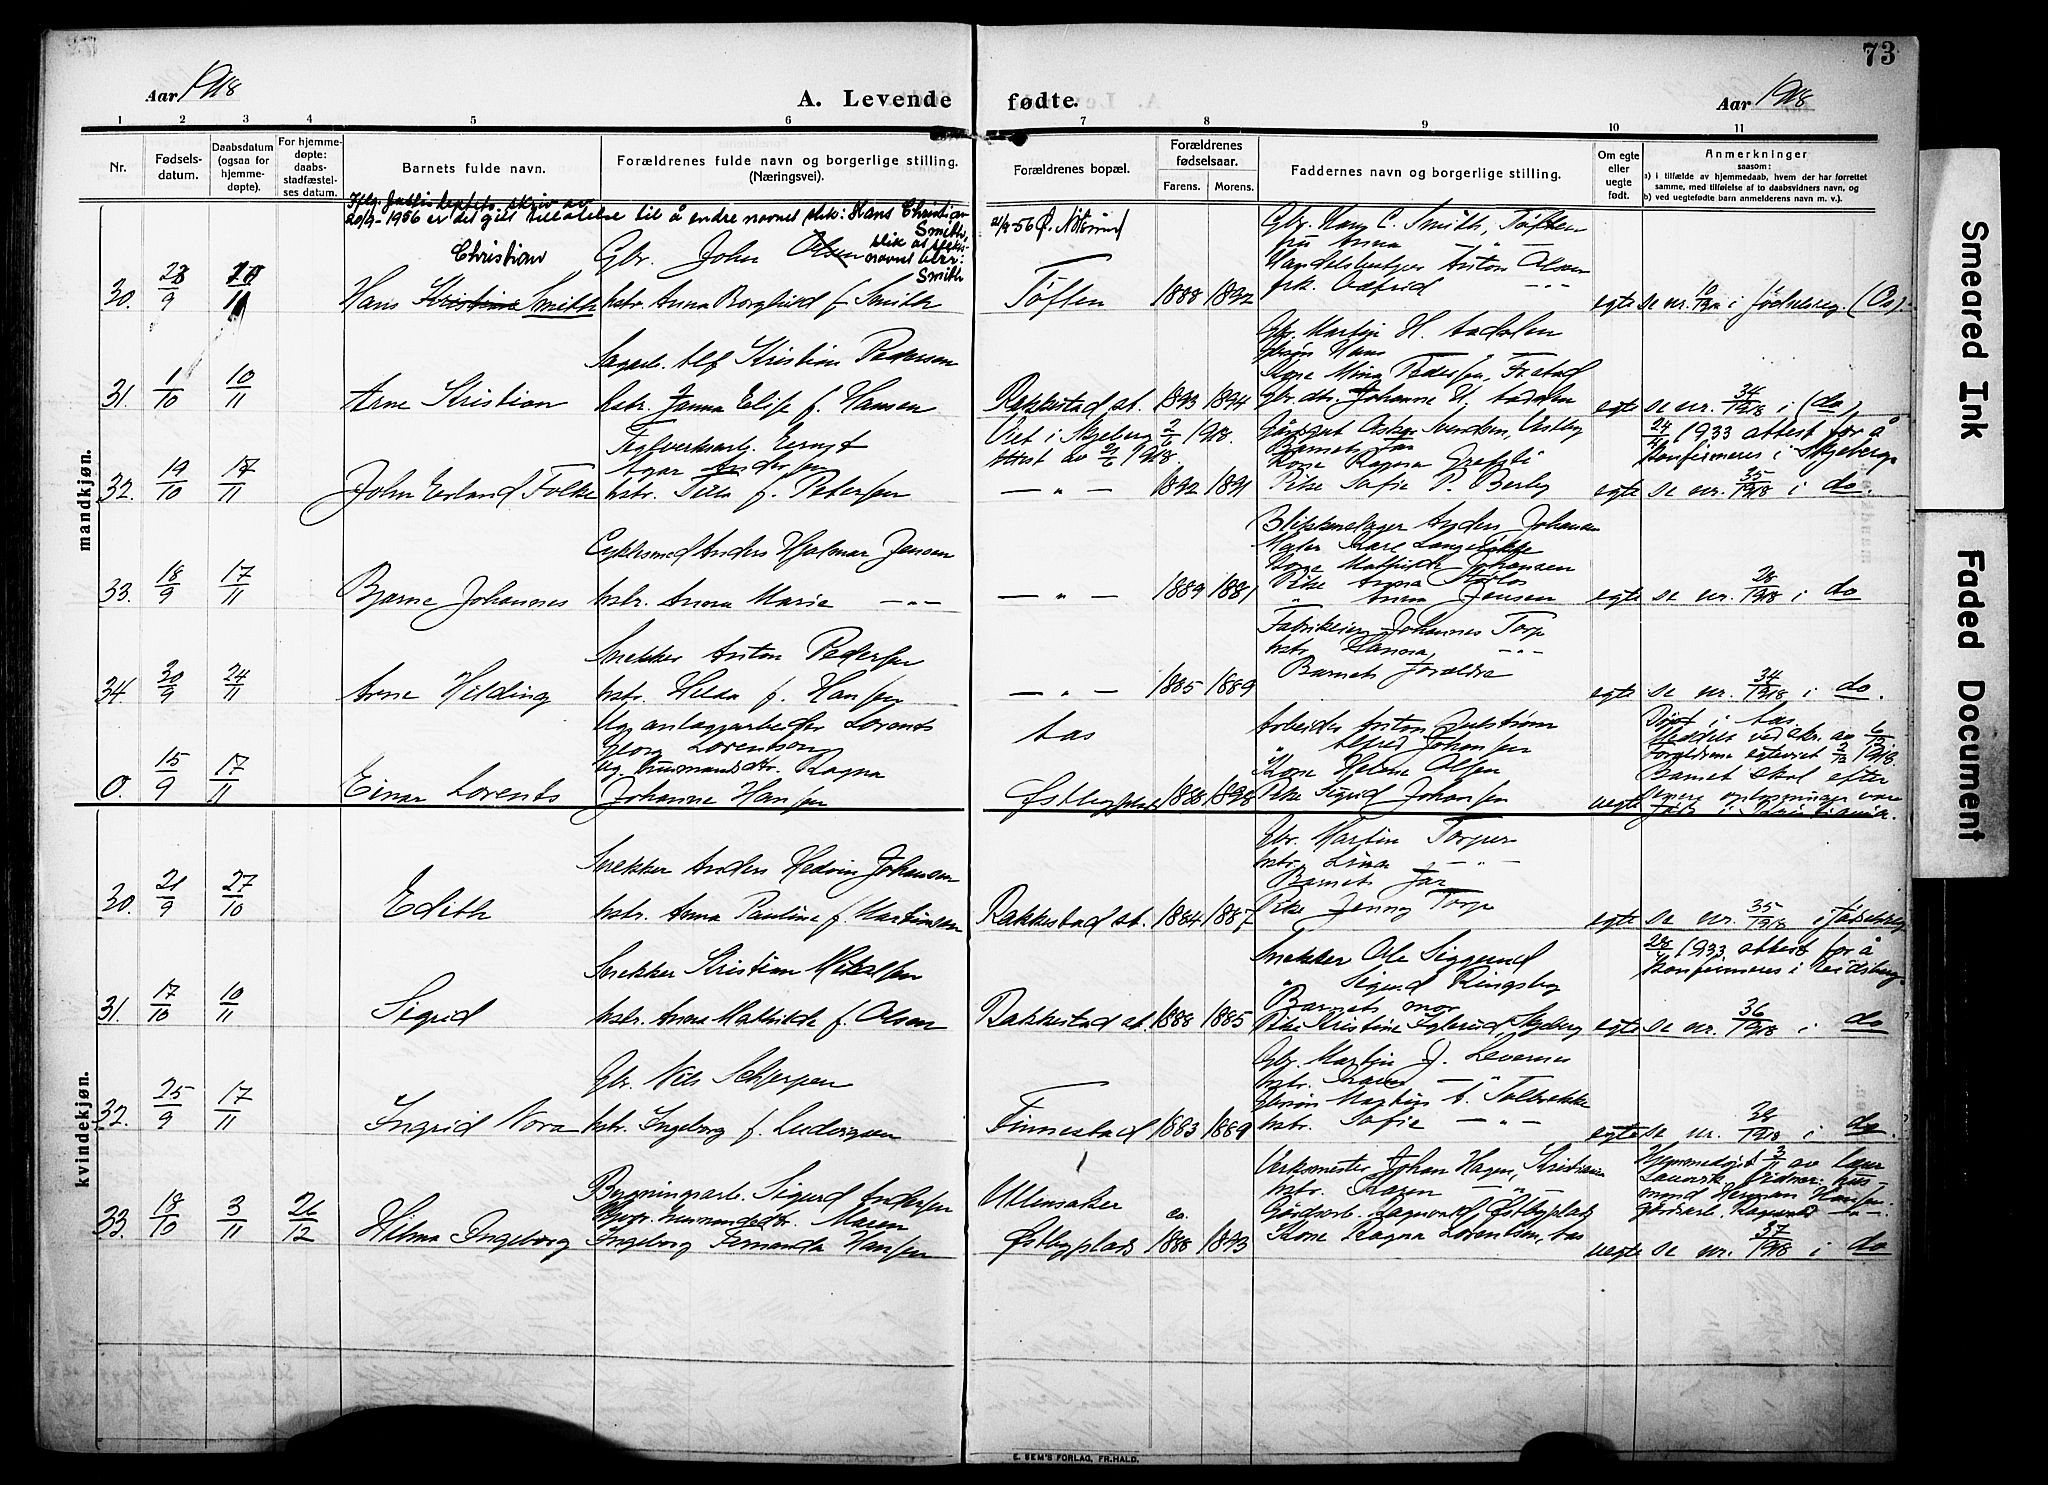 73
Aar 1918
A. Levende fødte.
Aar 1918
1 2 3 4 5 6 7 8 9 10 11
Nr.
Fødsels-
datum.
Daabsdatum
(ogsaa for
hjemme-
døpte).
For hjemme-
døpte:
daabs-
stadfæstel-
ses datum.
Barnets fulde navn.
Forældrenes fulde navn og borgerlige stilling.
(Næringsvei).
Forældrenes bopæl.
Forældrenes
fødselsaar.
Farens. Morens.
Faddernes navn og borgerlige stilling.
Om egte
eller
uegte
født.
Anmerkninger
saasom:
a) i tilfælde av hjemmedaab, hvem der har forrettet
samme, med tilføielse af to daabsvidners navn, og
b) ved uegtefødte barn anmelderens navn m. v.).
mandkjøn.
Iflg. Justisdeptets skriv av
20/9-1956 er det gitt tillatelse til å endre navnet slik: Hans Christian
Smith,
Christian
Gbr. John Olsen
Smith
30. 23/9 Hans Kristian Smith hstr. Anna Borghild f. Smith
Tøften 1888 1892
Gbr. Hans C. Smith, Tøften
fru Anna — " —
Handelsbestyrer Anton Olsen
egte se nr. i fødselsreg. (Os).
Sagarb. Alf Kristian Pedersen
31. 1/10 10/11 Arne Kristian hstr. Janna Elise f. Hansen
Rakkestad st. 1893 1894
Kone Mina Pedersen,
egte se nr. 34/1918 i (do)
Teglverksarb. Ernst
Agar Andersen
32. 19/10 17/11 John Erland Folke hstr. Tilla f. Petersen
Viet i Skjeberg 2/6 1918.
Attest av 2/6 1918.
— " — 1892 1891
Barnets far
Pike Sofie P. Berby
24/4 1933 attest for å
konfirmeres i Skjeberg.
egte se nr. 35/1918 i do.
Cyklesmed Anders Hjalmar Jensen
33. 18/9 17/11 Bjarne Johannes hstr. Anna Marie — " —
— " — 1889 1881
Blikkenslager Anders Johansen
Kone Mathilde Johansen
" Anna Jensen
egte se nr. 28/1918 i do
Snekker Anton Pedersen
34. 20/9 24/11 Arne Hilding hstr. Hilda f. Hansen
— " — 1885 1889
Fabrikeier Johannes Torp
hstr. Hanna — " —
Barnets forældre
egte se nr. 34/1918 i do.
Ug. anlægsarbeider Lorents
Georg Lorentsen
Ug. husmandsdtr. Ragna
Johanne Hansen
0. 15/9 17/11 Einar Lorents
Aas
Østbyplads 1888 1898
Arbeider Anton
" Alfred Johansen
Kone Helene Olsen
Pike Sigrid Johansen
uegte
Døpt i Aas.
Barnet skal efter
senere oplysninger være
født i Kristiania.
kvindekjøn.
Snekker Anders Hedvin Johansen
30. 21/9 27/10 Edith hstr. Anna Pauline f. Martinsen
Rakkestad st. 1884 1887
Gbr. Martin Torper
hstr. Lina — " —
Barnets far
Pike Jenny Torp
egte se nr. 35/1918 i fødselsreg.
Snekker Kristian Mikalsen
31. 17/10 10/11 Sigrid hstr. Anna Mathilde f. Olsen
Rakkestad st. 1888 1885
Snekker Ole Siggerud
" Sigurd Ringsby
Barnets mor
28/4 1933 attest for å
konfirmeres i Eidsberg.
egte se nr. 36/1918 i do
Gbr. Nils Schjerpen
32. 25/9 17/11 Ingrid Nora hstr. Ingeborg f. Ludvigsen
Finnestad 1883 1889
Gbr. Martin J. Levernes
hstr. Karen — " —
hstr. Sofie — " —
egte se nr. i do.
Bygningsarb. Sigurd Andersen
Ugift husmandsdtr. Maren
33. 18/10 3/11 26/12 Hilma Ingeborg Ingeborg Fernanda Hansen
Ullensaker
Østbyplads ca. 1888 1893
Verksmester Johan Hagen, Kristiania
hstr. Karen — " —
Gårdsarb. Ragnvald, Østbyplads
Kone Ragna Lorentsen, Aas
uegte
Hjemmedøpt 3/11 av
mand Herman Hansen
Gårdsarb. Ragnvald — " —
se nr. 37/1918 i do
E. SEM'S FORLAG, FR.HALD.
Smeared Ink
Faded Document